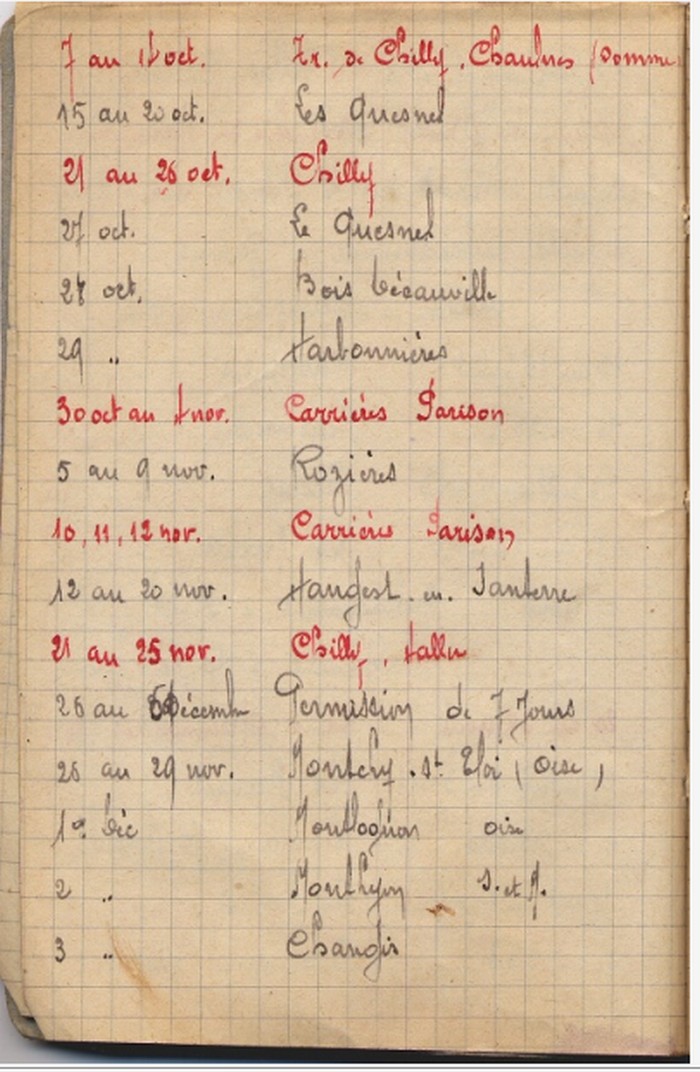 7 au 14 oct. Tr. de Chilly. Chaulnes (Somme
15 au 20 oct. Les Quesnel
21 au 26 oct. Chilly
27 oct. Le Quesnel
28 oct. Bois Décauville
29 " Harbonnières
30 oct au 4 nov. Carrières Parison
5 au 9 nov. Rozières
10, 11, 12 nov. Carrières Parison
12 au 20 nov. Hangest. en. Santerre
21 au 25 nov. Chilly, Hallu
26 au Décembre Permission de 7 Jours
26 au 29 nov. Montchy. St Eloi (Oise)
1er Déc Montlognon oise
2 " Monthyon S. et M.
3 " Changis